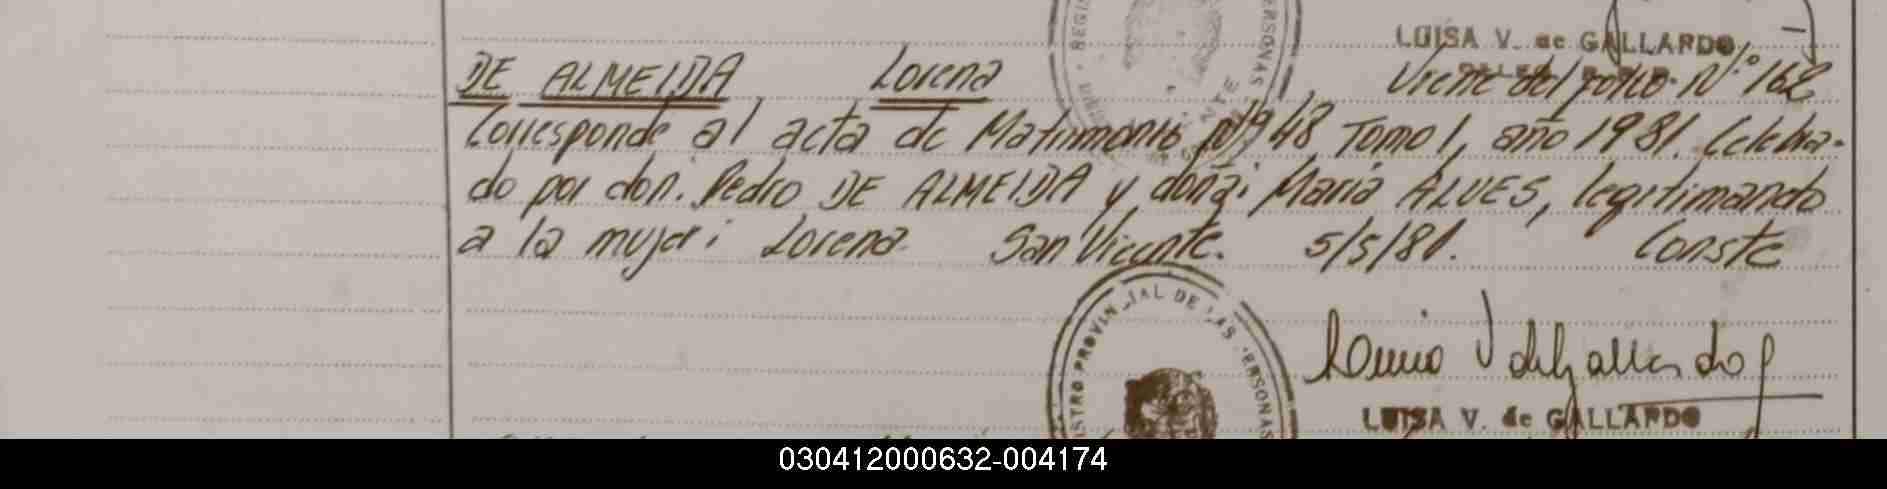 REGIS
PERSONAS
LUISA V. de GALLARDO
DE ALMEIDA Lorena Viene del folio N° 162
Corresponde al acta de Matrimonio N° 48 Tomo 1, año 1981. Celebra-
do por don: Pedro DE ALMEIDA y doña: María ALVES, legitimando
a la mujer: Lorena. San Vicente. 5/5/81. Conste
REGISTRO PROVINCIAL DE LAS PERSONAS
LUISA V. de GALLARDO
030412000632-004174